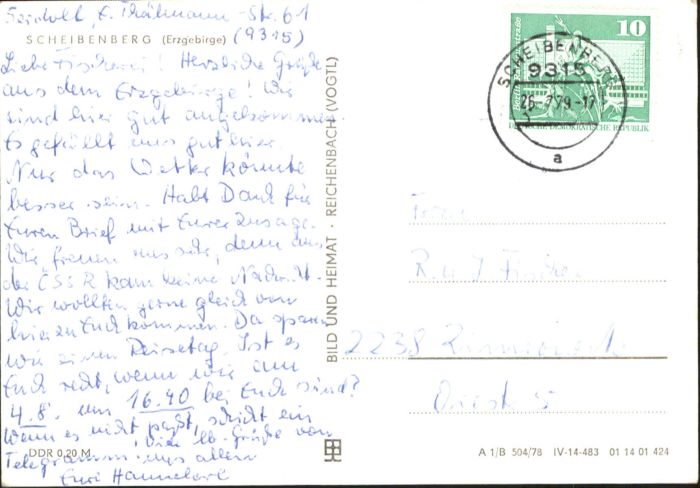 Seidell, E. Thälmann-Str. 61
SCHEIBENBERG (Erzgebirge) (9315)
Liebe Fischerei! Herzliche Grüße
aus dem Erzgebirge! Wir
sind hier gut angekommen.
Es gefällt uns gut hier.
Nur das Wetter könnte
besser sein. Habt Dank für
Euren Brief mit Eurer Zusage.
Wir freuen uns sehr, denn aus
der ČSSR kam keine Nachricht.
Wir wollten gerne gleich von
hier zu Euch kommen. Da sparen
wir einen Reisetag. Ist es
Euch recht, wenn wir am
4.8. um 16.40 bei Euch sind?
Wenn es nicht paßt, schickt ein
Telegramm. Viele lb. Grüße von
uns allen
Eure Hannelore
DDR 0,20 M
BILD UND HEIMAT · REICHENBACH (VOGTL)
10
DEUTSCHE DEMOKRATISCHE REPUBLIK
SCHEIBENBERG
9315
26.-7.79-17
a
Fischer
2238
5
A 1/B 504/78 IV-14-483 01 14 01 424